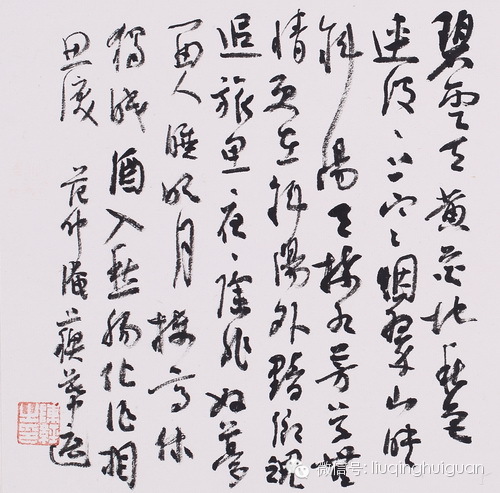 碧雲天黄葉地秋色
連波、上寒烟翠山映
斜陽天接水芳草無
情更在斜陽外黯鄉魂
追旅思夜、除非好夢
留人睡明月樓高休
獨倚酒入愁腸化作相
思淚 范仲淹 蘇幕遮
微信号: liuqinghuiguan